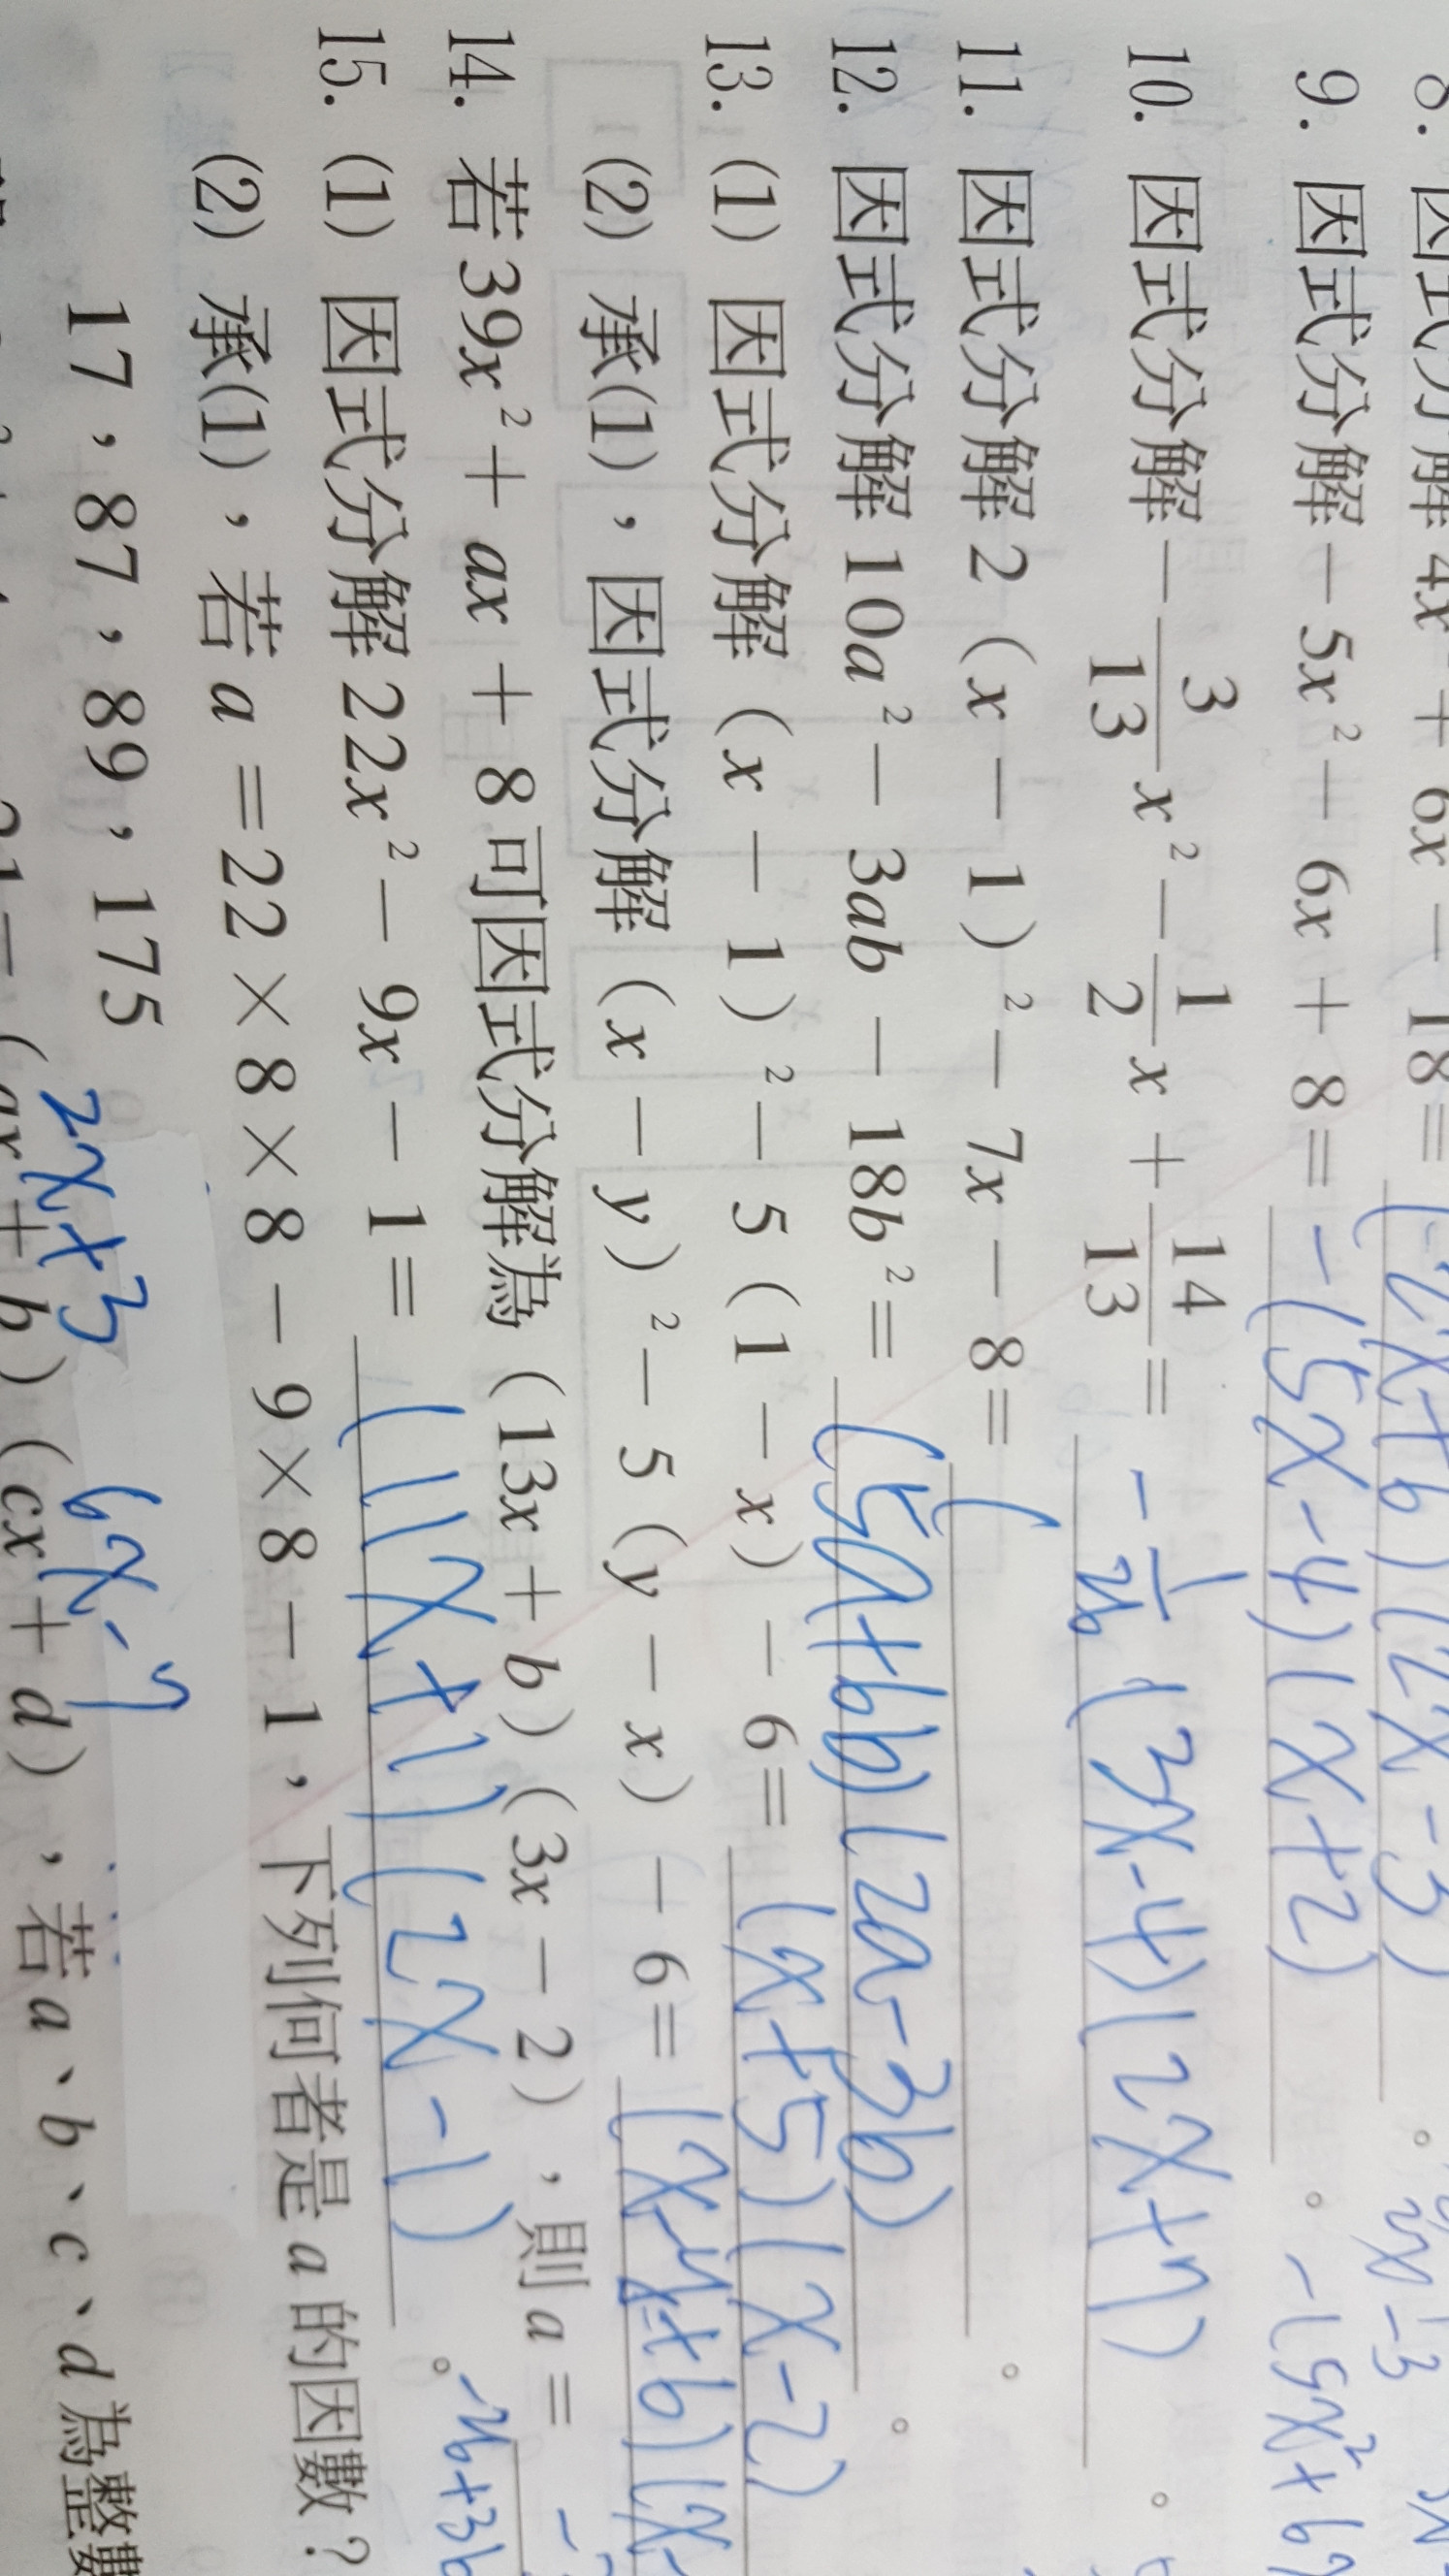 8. 因式分解 4x² + 6x - 18 = (2x+6)(2x-3)。
9. 因式分解 - 5x² - 6x + 8 = -(5x-4)(x+2)。 -(5x²+6x
10. 因式分解 - 3/13 x² - 1/2 x + 14/13 = -1/26 (3x-4)(2x+7)。
11. 因式分解 2(x - 1)² - 7x - 8 = (。
12. 因式分解 10a² - 3ab - 18b² = (5a+6b)(2a-3b)。
13. (1) 因式分解(x - 1)² - 5(1 - x) - 6 = (x+5)(x-2)
(2) 承(1),因式分解(x - y)² - 5(y - x) - 6 = (x-y+6)(x-
14. 若 39x² + ax + 8 可因式分解為(13x + b)(3x - 2),則 a = -
-26+3b
15. (1) 因式分解 22x² - 9x - 1 = (11x+1)(2x-1)。
(2) 承(1),若 a = 22 × 8 × 8 - 9 × 8 - 1,下列何者是 a 的因數?
17,87,89,175
2x+3 6x-7
(ax + b)(cx + d),若 a、b、c、d 為整數